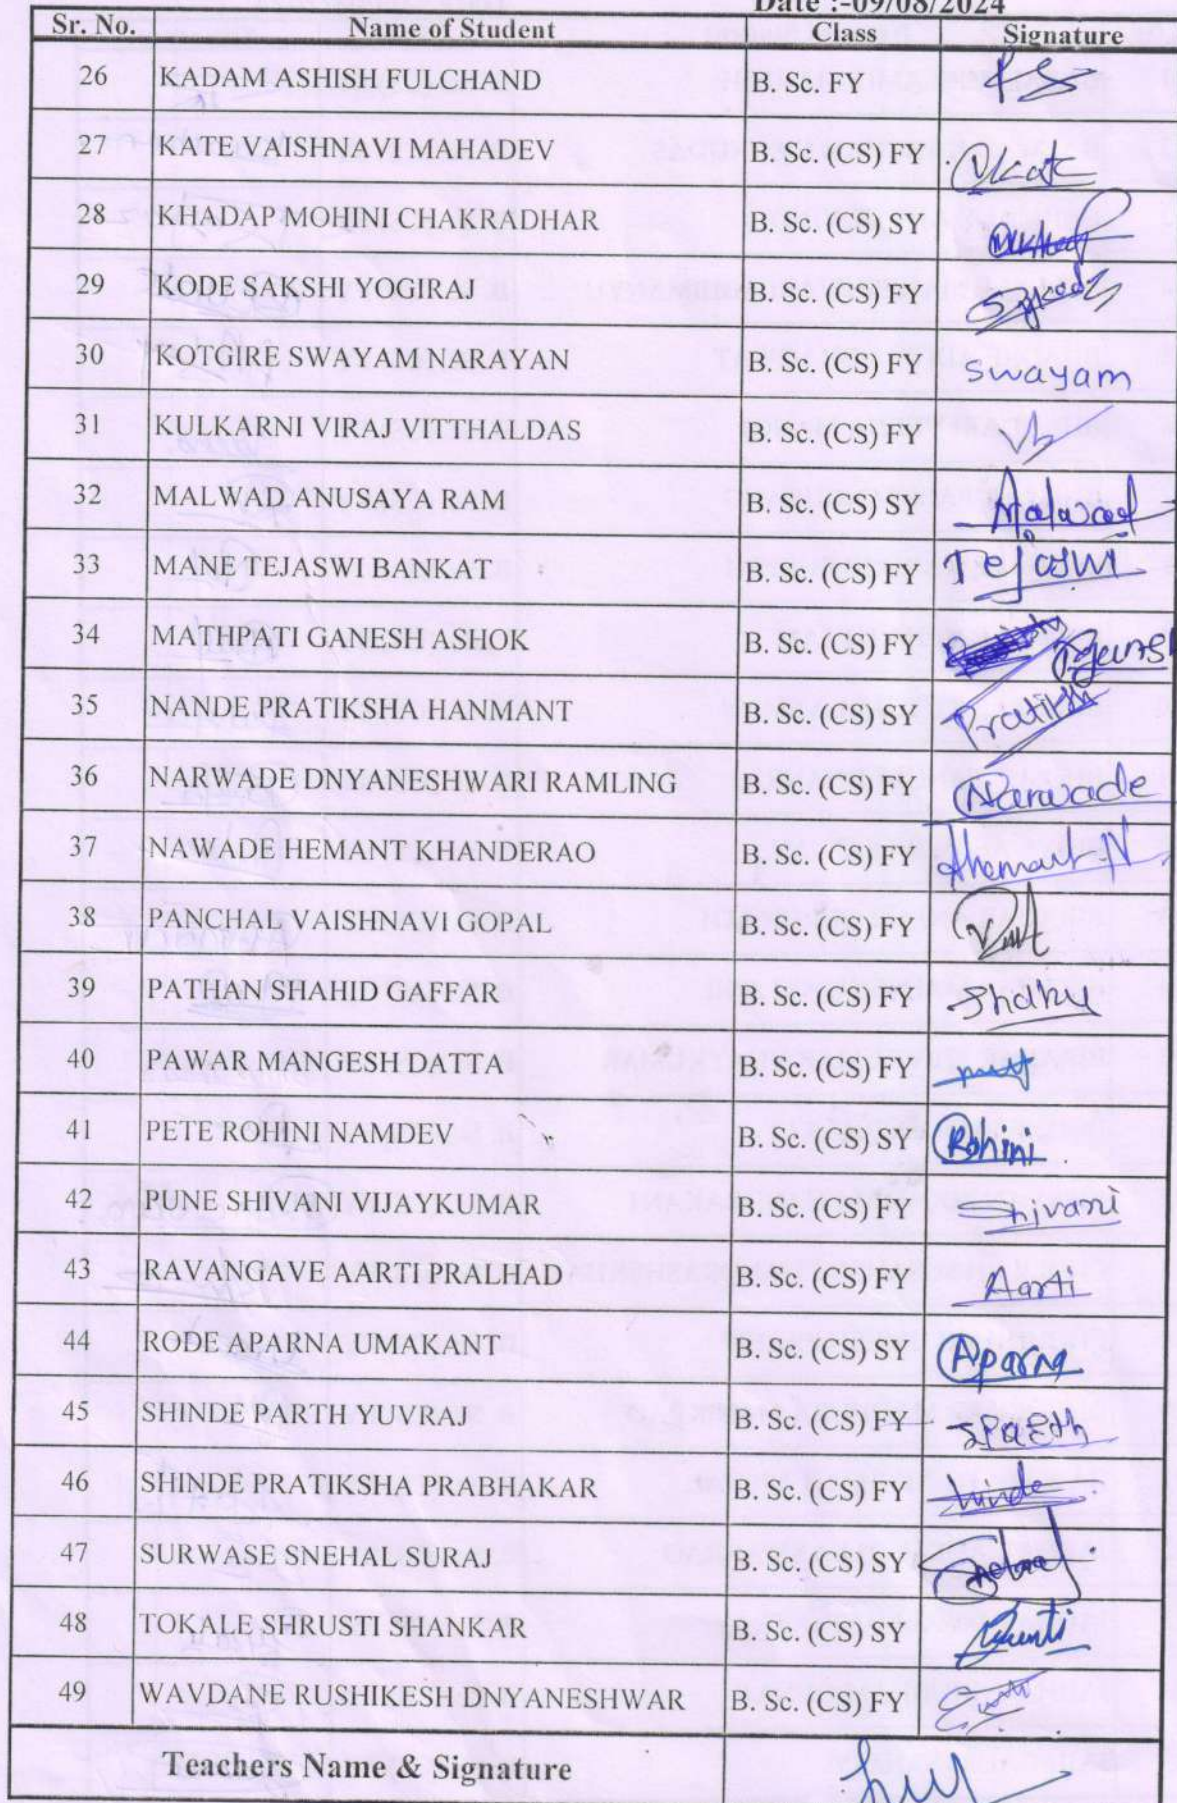 Date :-09/08/2024
Sr. No. Name of Student Class Signature
26 KADAM ASHISH FULCHAND B. Sc. FY
27 KATE VAISHNAVI MAHADEV B. Sc. (CS) FY VKate
28 KHADAP MOHINI CHAKRADHAR B. Sc. (CS) SY
29 KODE SAKSHI YOGIRAJ B. Sc. (CS) FY
30 KOTGIRE SWAYAM NARAYAN B. Sc. (CS) FY Swayam
31 KULKARNI VIRAJ VITTHALDAS B. Sc. (CS) FY
32 MALWAD ANUSAYA RAM B. Sc. (CS) SY Malwad
33 MANE TEJASWI BANKAT B. Sc. (CS) FY Tejaswi
34 MATHPATI GANESH ASHOK B. Sc. (CS) FY
35 NANDE PRATIKSHA HANMANT B. Sc. (CS) SY
36 NARWADE DNYANESHWARI RAMLING B. Sc. (CS) FY Narwade
37 NAWADE HEMANT KHANDERAO B. Sc. (CS) FY
38 PANCHAL VAISHNAVI GOPAL B. Sc. (CS) FY
39 PATHAN SHAHID GAFFAR B. Sc. (CS) FY
40 PAWAR MANGESH DATTA B. Sc. (CS) FY
41 PETE ROHINI NAMDEV B. Sc. (CS) SY Rohini
42 PUNE SHIVANI VIJAYKUMAR B. Sc. (CS) FY Shivani
43 RAVANGAVE AARTI PRALHAD B. Sc. (CS) FY Aarti
44 RODE APARNA UMAKANT B. Sc. (CS) SY Aparna
45 SHINDE PARTH YUVRAJ B. Sc. (CS) FY
46 SHINDE PRATIKSHA PRABHAKAR B. Sc. (CS) FY
47 SURWASE SNEHAL SURAJ B. Sc. (CS) SY
48 TOKALE SHRUSTI SHANKAR B. Sc. (CS) SY
49 WAVDANE RUSHIKESH DNYANESHWAR B. Sc. (CS) FY
Teachers Name & Signature